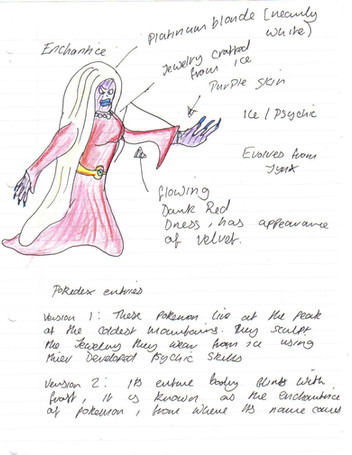 Enchantice
Platinum blonde (nearly
white)
Jewelry crafted
from ice
Purple skin
Ice / Psychic
Evolved from
Jynx
flowing
Dark Red
Dress, has appearance
of velvet.
Pokedex entries
Version 1: These Pokemon live at the peak
of the coldest mountains. They sculpt
the Jewelry they wear from ice using
thier Developed Psychic Skills
Version 2: Its entire body glints with
frost, it is known as the enchantice
of pokemon, from where its name comes